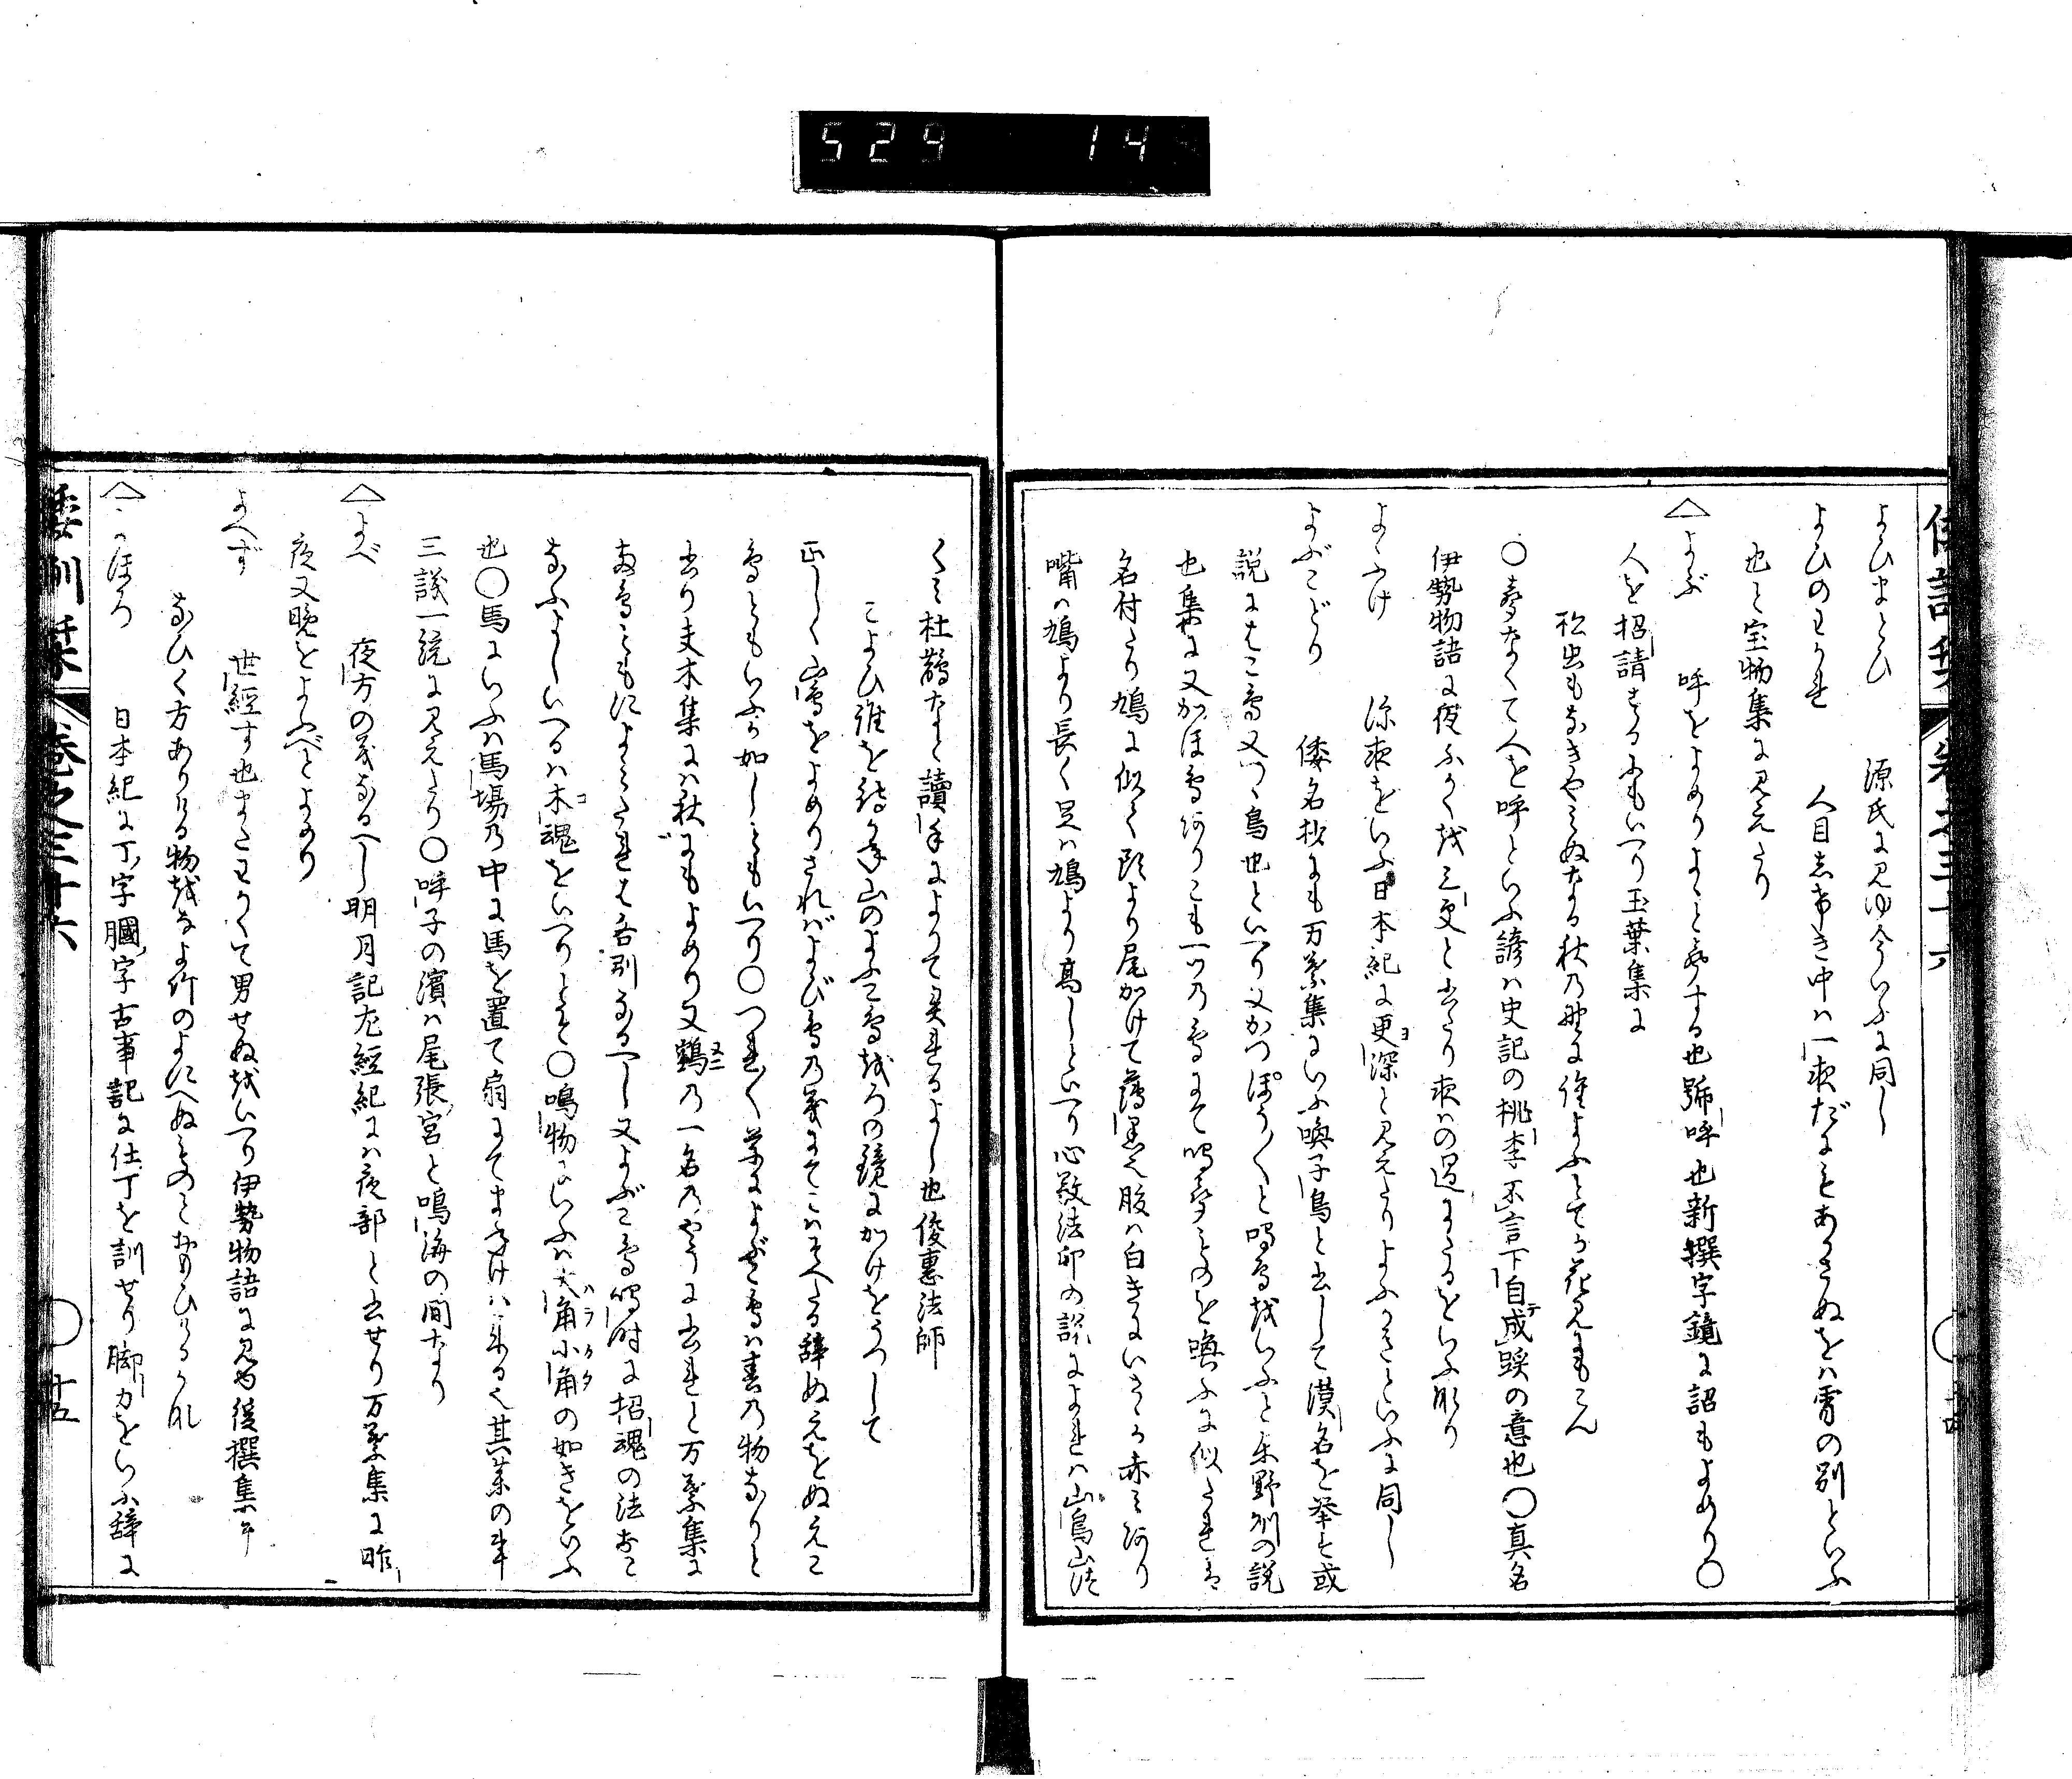 529 14
倭訓栞 巻之三十六 ○十四
よひまとひ 源氏に見ゆ今いふに同し
よひのわかれ 人目しけき中は一夜だにもあかさぬをは宵の別といふ
也と宝物集に見えたり
△よぶ 呼をよめりよと声する也號呼也新撰字鏡に詔もよめり○
人を招請するにもいへり玉葉集に
松虫もなきやみぬなる秋の野に誰よふとてか花見にもこん
○声なくて人を呼といふ諺は史記の桃李不言下自成蹊の意也○真名
伊勢物語に夜ふかく越三更と書たり夜はの過にたるをいふ也
よふけ 深夜をいふ日本紀に更深と見えたりよふかきといふに同し
よぶこどり 倭名抄にも万葉集にいふ喚子鳥と出して漢名を挙す或
説にはこ鳥又つゝ鳥也といへり又かつぽう〳〵と鳴鳥をいふと
也集に又かほ鳥ありこも一つの鳥にて鳴声ものを喚ふに似たれは
名付たり鳩に似て頭より尾かけて薄黒え腹は白きにいさゝか赤み有り
嘴は鳩より長く足は鳩より高しといへり心敬法印の説によれは山鳥
くみ杜鵑なと讀手によりて異れるよし也俊惠法師
こよひ誰を待かね山のよふこ鳥をろの鏡にかけをうつして
正しく山鳥をよめりされはよび鳥の義にてこはそへたる辞ぬえをぬえこ
鳥ともいふか如しともいへり○つれ〳〵草によぶこ鳥は春の物なりと
書り夫木集には秋にもよめり又鵺の一名のやうに書れと万葉集に
ぬえこ鳥ともによみたれは各別なるへし又よぶこ鳥鳴時に招魂の法おこ
なふよしいへるは木魂をいへりとそ○鳴物にいふは大角小角の如きをいふ
也○馬にいふは馬場の中に馬を置て扇にてまねけは来る也其葉の事
三議一統に見えたり○呼子の濱は尾張宮と鳴海の間なり
△よべ 夜方の義なるへし明月記左經紀には夜部と書せり万葉集に昨
夜又晩をよふべとよめり
よへず 世經す也またわかくて男せぬをいへり伊勢物語に見ゆ後撰集に
なひく方ありける物をなよ竹のよにへぬものとおもひけるかな
△よほろ 日本紀に丁字膕字古事記に仕丁を訓せり脚力をいふ辞に
倭訓栞 巻之三十六 ○十五